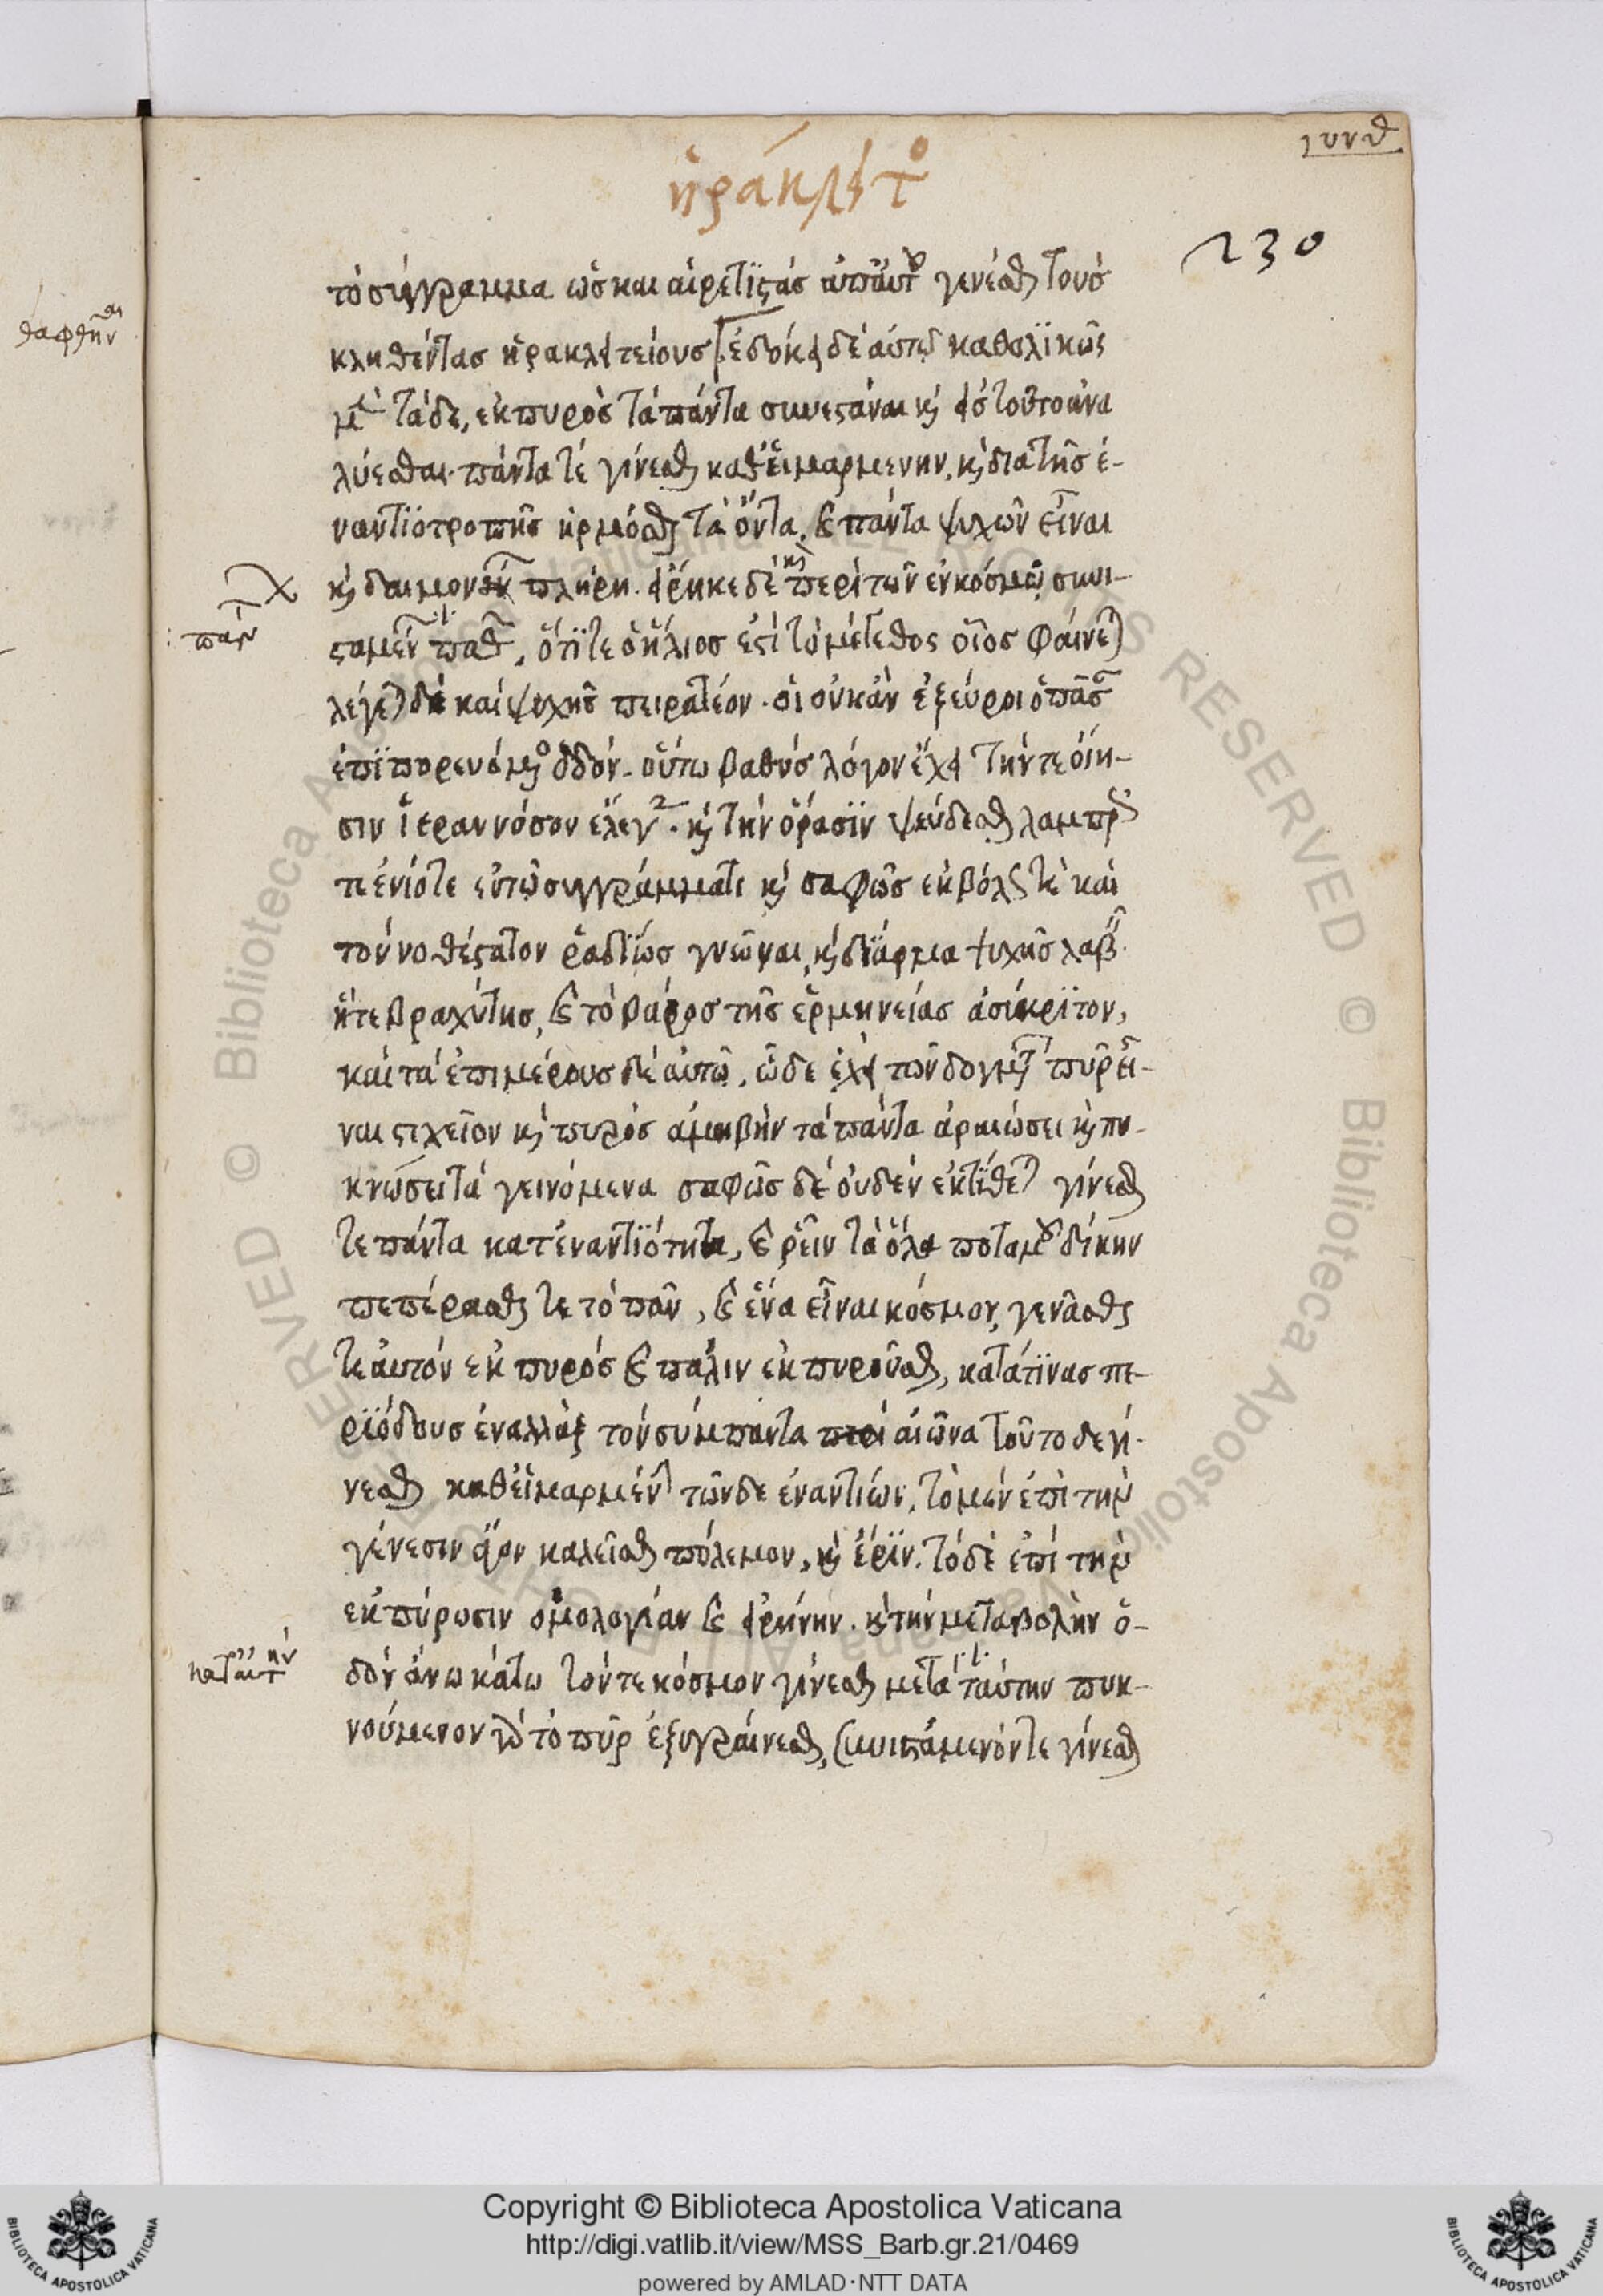 ἡράκλειτο
230
τὸ σύγγραμμα ὡς καὶ αἱρετιστὰς ἀπ' αὐτοῦ γενέσθαι τοὺς
κληθέντας ἡρακλειτείους ἐδόκει δὲ αὐτῷ καθολϊκῶς
μὲν τάδε, ἐκ πυρὸς τὰ πάντα συνεστάναι καὶ εἰς τοῦτο ἀνα
λύεσθαι· πάντα τὲ γίνεσθαι καθ' εἱμαρμένην, καὶ διὰ τῆς ἐ-
ναντιοτροπῆς ἡρμόσθαι τὰ ὄντα, καὶ πάντα ψυχῶν εἶναι
καὶ δαιμόνων πλήρη. εἴρηκε δὲ καὶ περὶ τῶν ἐν κόσμῳ συνι-
σταμένων παθ, ὅτϊ τε ὁ ἥλιος ἐστὶ τὸ μέγεθος οἷος φαίνεται
λέγεται δὲ καὶ ψυχῆς πειρατέον. οἱ οὐκ ἂν ἐξεύροι ὁ πᾶσαν
ἐπϊπορευόμενος ὁδόν. οὕτω βαθὺς λόγον ἔχει τήν τε οἴη-
σιν ἱερὰν νόσον ἔλεγε. καὶ τὴν ὅρασϊν ψεύδεσθαι λαμπρῶς
τε ἐνίοτε ἐν τῷ συγγράμματι καὶ σαφῶς ἐκβόλ τὲ καὶ
τὸν νοθέστατον ῥαδϊως γνῶναι, καὶ δϊαρμα ψυχῆς λαβ.
ἥ τε βραχύτης, καὶ τὸ βάρος τῆς ἑρμηνείας ἀσύκρϊτον,
καὶ τὰ ἐπιμέρους δὲ αὐτῶ, ὧδε ἔχει τῶν δογμάτ πῦρ εἶ-
ναι στιχεῖον καὶ πυρὸς ἀμοιβὴν τὰ πάντα ἀραιώσει καὶ πυ-
κνώσει τὰ γεινόμενα σαφῶς δὲ οὐδὲν ἐκτϊθεται γίνεσθαι
τε πάντα κατ' ἐναντϊότητα, καὶ ῥεῖν τὰ ὅλα ποταμοῦ δίκην
πεπέρασθαι τε τὸ πᾶν, καὶ ἕνα εἶναι κόσμον, γενᾶσθαι
τε αὐτὸν ἐκ πυρὸς καὶ πάλιν ἐκπυροῦσθαι, κατάτϊνας πε-
ρϊόδους ἐναλλὰξ τὸν σύμπαντα αἰῶνα τοῦτο δε γί-
νεσθαι καθ' εἱμαρμένην τῶν δε ἐναντίων, τὸ μὲν ἐπὶ τὴν
γένεσιν ἄγον καλεῖσθαι πόλεμον, καὶ ἔρϊν. τὸ δὲ ἐπὶ τὴν
ἐκπύρωσιν ὁμολογίαν καὶ εἰρήνην. καὶ τὴν μεταβολὴν ὁ-
κατ αυτ ην
δὸν ἄνω κάτω τόν τε κόσμον γίνεσθαι μετὰ ταύτην πυκ-
νούμενον γὰρ τὸ πῦρ ἐξυγραίνεσθαι, συνιστάμενόν τε γίνεσθαι
Copyright © Biblioteca Apostolica Vaticana
http://digi.vatlib.it/view/MSS_Barb.gr.21/0469
powered by AMLAD·NTT DATA